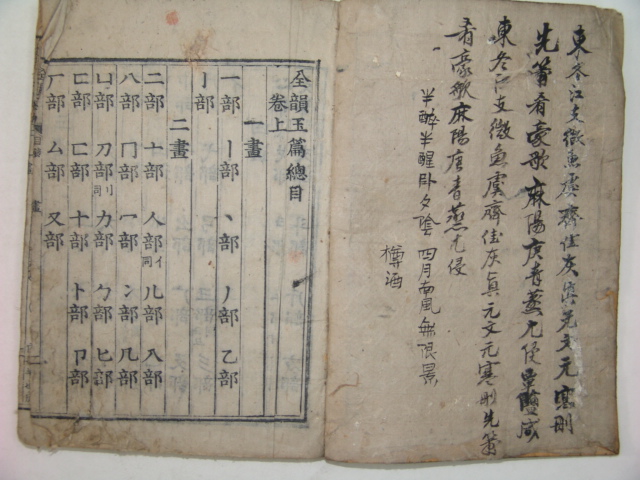 東冬江支微魚虞齊佳灰眞元文元寒刪
先蕭肴豪歌麻陽庚青蒸尤侵覃鹽咸
東冬江支微魚虞齊佳灰眞元文元寒刪先蕭
肴豪歌麻陽庚青蒸尤侵
半醉半醒臥夕陰 四月南風無限景
樽酒
全韻玉篇總目
卷上
一畫
一部 丨部 丶部 丿部 乙部
亅部
二畫
二部 亠部 人部 亻同 儿部 入部
八部 冂部 冖部 冫部 几部
凵部 刀部 刂同 力部 勹部 匕部
匚部 匸部 十部 卜部 卩部
厂部 厶部 又部